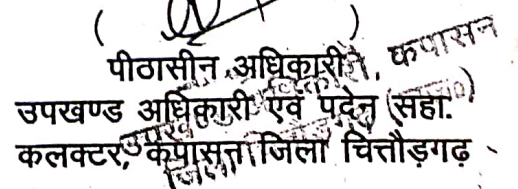 ( )
पीठासीन अधिकारी, कपासन
उपखण्ड अधिकारी एवं पदेन (सहा.
कलक्टर, कपासन जिला चित्तौड़गढ़